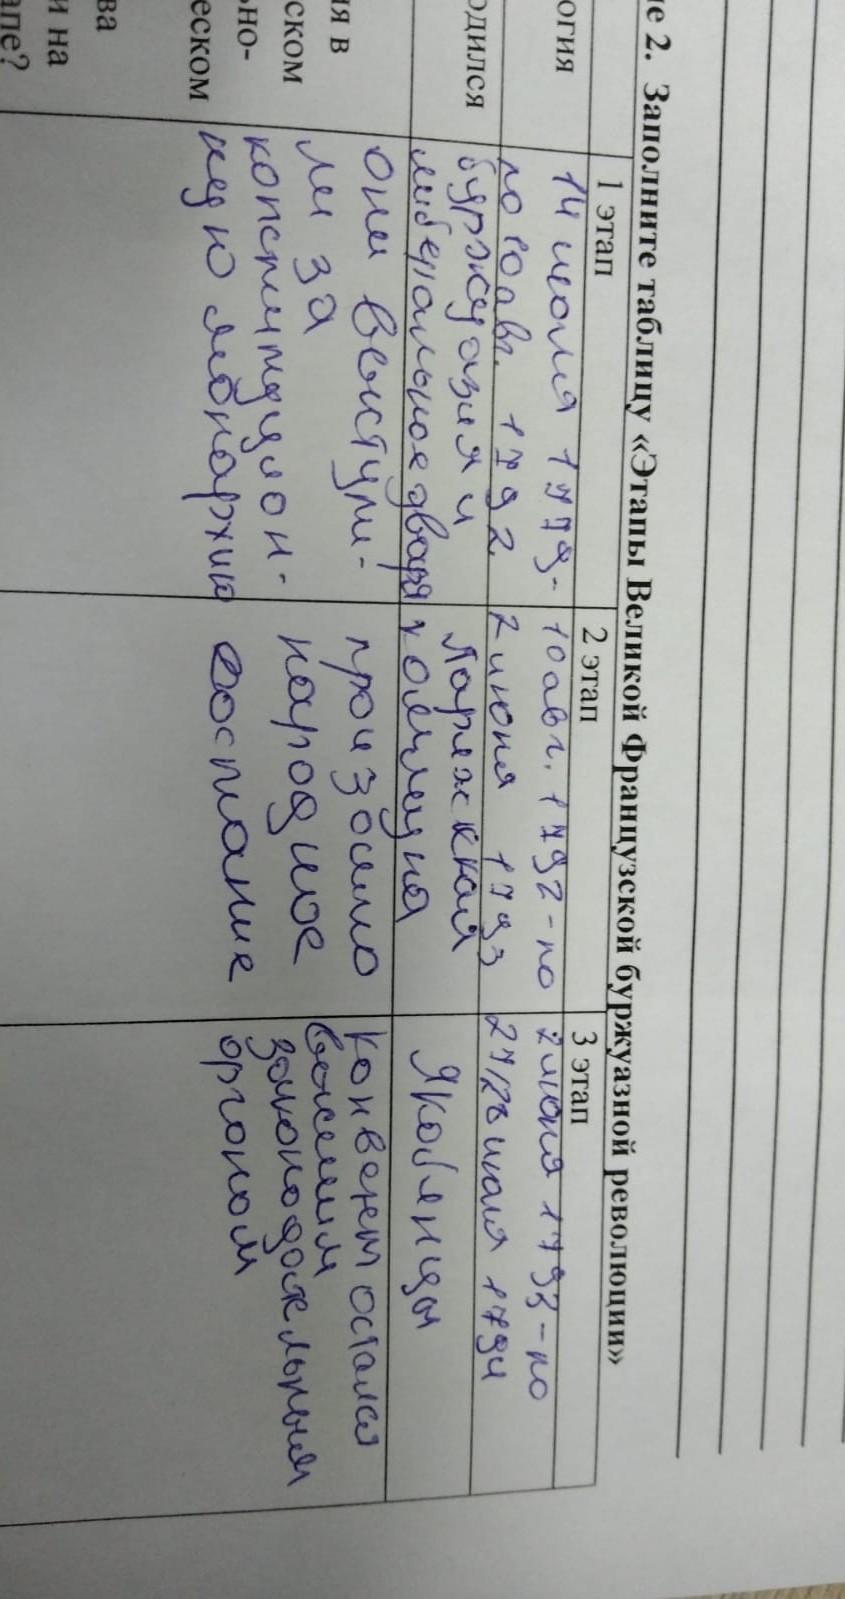 ие 2. Заполните таблицу «Этапы Великой Французской буржуазной революции»
1 этап
2 этап
3 этап
огия
14 июля 1779-
по 10 авг. 1792
10 авг. 1792-по
2 июня 1793
2 июня 1793-по
27/28 июля 1794
одился
буржуазия и
либеральное дворя
Парижская
коммуна
Якобинцы
ия в
ском
ьно-
еском
они выступи-
ли за
конституцион-
ную монархию
произошло
народное
восстание
конвент остался
высшим
законодательным
органом
ва
и на
апе?